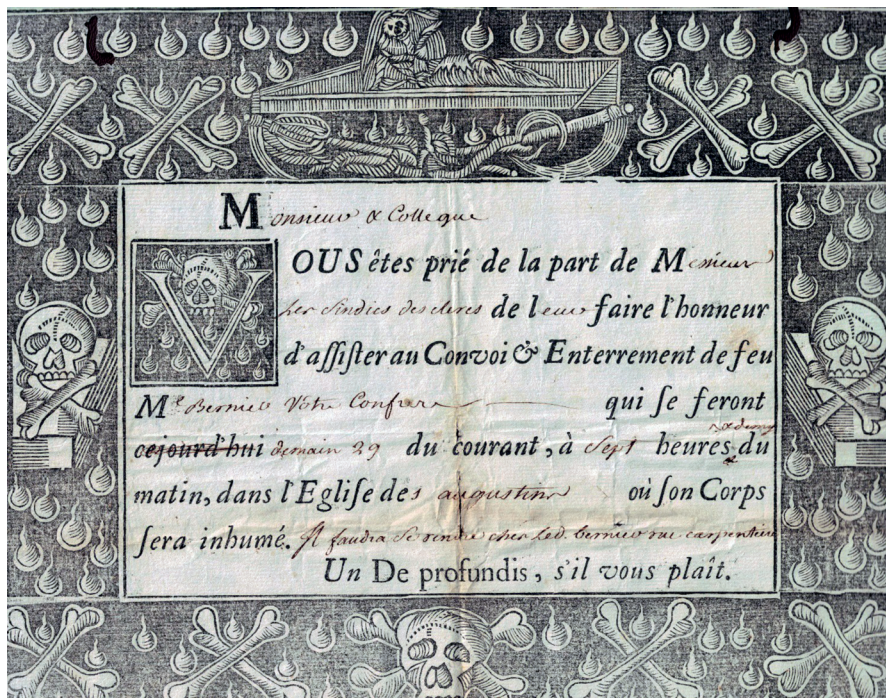 Monsieur & Collegue
VOUS êtes prié de la part de Messieurs
les Sindics des clercs de leur faire l'honneur
d'aſſiſter au Convoi & Enterrement de feu
Me Bernier Votre Confrere qui ſe feront
cejourd'hui demain 29 du courant, à Sept heures & demy du
matin, dans l'Egliſe des augustins où ſon Corps
ſera inhumé. Il faudra se rendre chez led. bernier rue carpenterie
Un De profundis, s'il vous plaît.